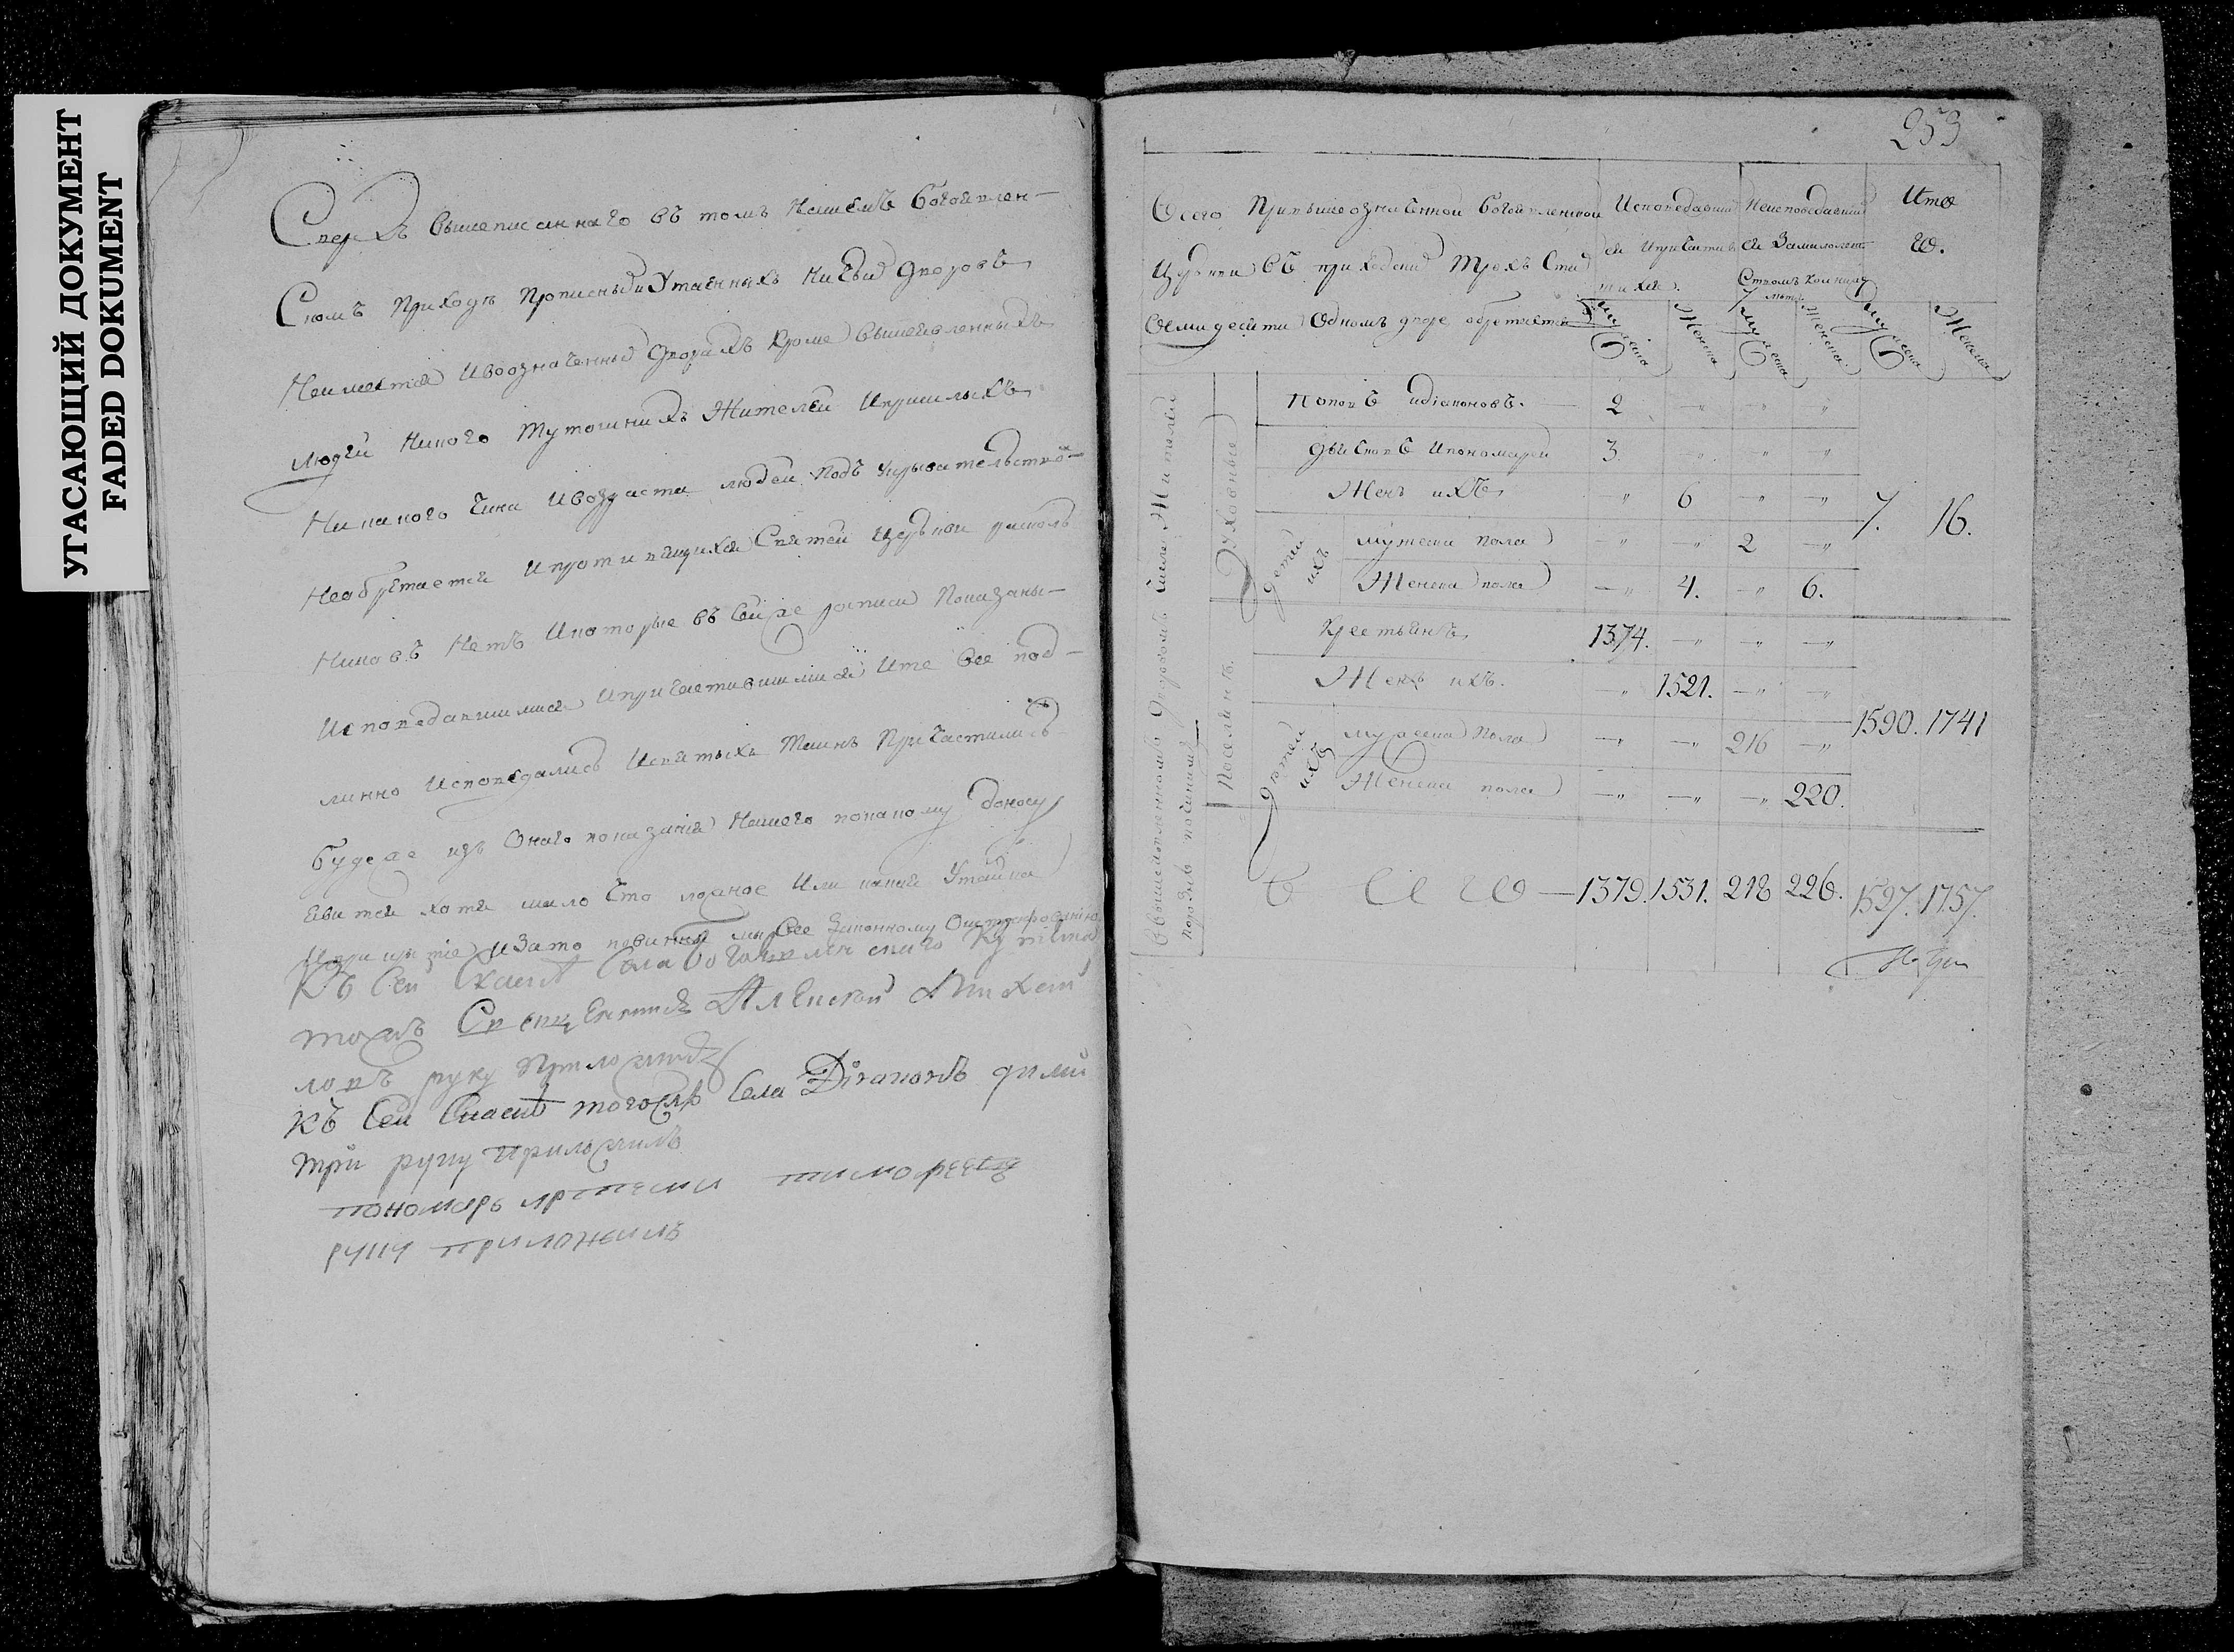 УГАСАЮЩИЙ ДОКУМЕНТ
FADED DOKUMENT
Сверхъ вышеписаннаго въ томъ нашемъ Богоявлен-
скомъ приходе прописных и утаенныхъ ничьих дворовъ
неимеется и въозначенных дворахъ кроме вышеявленныхъ
людей никого тутошнихъ жителей и пришлыхъ
никакого чина и возраста людей подъ укрывательство-
необретается и противящихся святей церкви расколь
никовъ нетъ и которые въ сей же росписи показаны-
исповедавшимися и причастившимися и те все под-
линно исповедались и святыхъ таинъ причастились
буде же изъ онаго показания нашего покакому доносу
явится хотя мало что ложное или какая утайка
и прикрытие и за то повинны мы все законному оштрафованию
Къ сей сказке села богоявленскаго
тожъ священникъ Алексей михай
ловъ руку приложилъ
Къ сей сказке тогожъ села Діаконъ дими
трий руку приложилъ
пономарь артеми тимофеевъ
руку приложилъ
253
Всего при вышеозначенной Богоявленской
церкви въ приходе трехъ стахъ
семидесяти одномъ дворе обретается
Исповедавших
ся и причастив
шихся.
Неисповедавших
ся за малолет
ствомъ
Ито
го.
мужеска
женска
мужеска
женска
мужеска
женска
Духовные
Поповъ и діаконовъ. — 2 „ „ „
дьячковъ и пономарей 3. „ „ „
Женъ ихъ — „ 6 — „ — „
детей ихъ
мужеска пола — „ — „ 2 — „
Женска пола — „ 4. — „ 6.
7. 16.
Поселянъ.
Крестьянъ 1374. — „ — „ — „
Женъ ихъ. — „ 1521. — „ — „
детей ихъ
мужеска пола — „ — „ 216 — „
Женска пола — „ — „ — „ 220.
1590. 1741
Всего — 1379. 1531. 218 226. 1597. 1757.